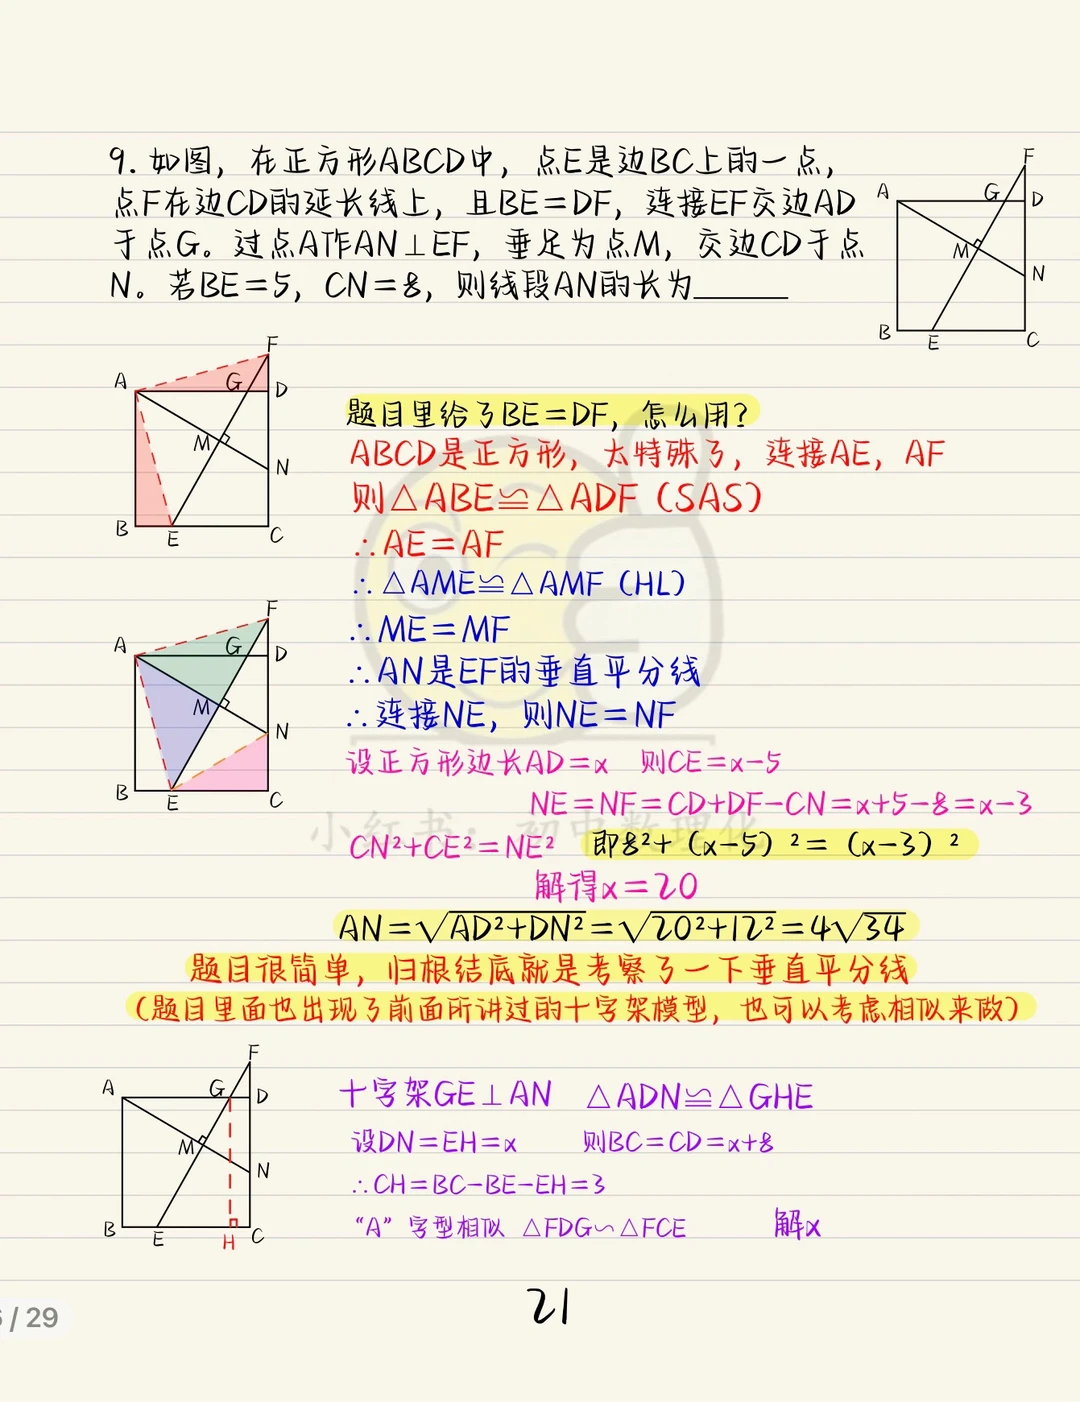 9. 如图，在正方形ABCD中，点E是边BC上的一点，
点F在边CD的延长线上，且BE=DF，连接EF交边AD
于点G。过点A作AN⊥EF，垂足为点M，交边CD于点
N。若BE=5，CN=8，则线段AN的长为______
F
A
G
D
M
N
B
E
C
F
A
G
D
M
N
B
E
C
题目里给了BE=DF，怎么用？
ABCD是正方形，太特殊了，连接AE，AF
则△ABE≌△ADF（SAS）
∴AE=AF
∴△AME≌△AMF（HL）
∴ME=MF
∴AN是EF的垂直平分线
∴连接NE，则NE=NF
F
A
G
D
M
N
B
E
C
设正方形边长AD=x 则CE=x-5
NE=NF=CD+DF-CN=x+5-8=x-3
小红书：初中数理化
CN²+CE²=NE² 即8²+（x-5）²=（x-3）²
解得x=20
AN=√AD²+DN²=√20²+12²=4√34
题目很简单，归根结底就是考察了一下垂直平分线
（题目里面也出现了前面所讲过的十字架模型，也可以考虑相似来做）
F
A
G
D
M
N
B
E
H
C
十字架GE⊥AN △ADN≌△GHE
设DN=EH=x 则BC=CD=x+8
∴CH=BC-BE-EH=3
“A”字型相似 △FDG∽△FCE 解x
21
/ 29